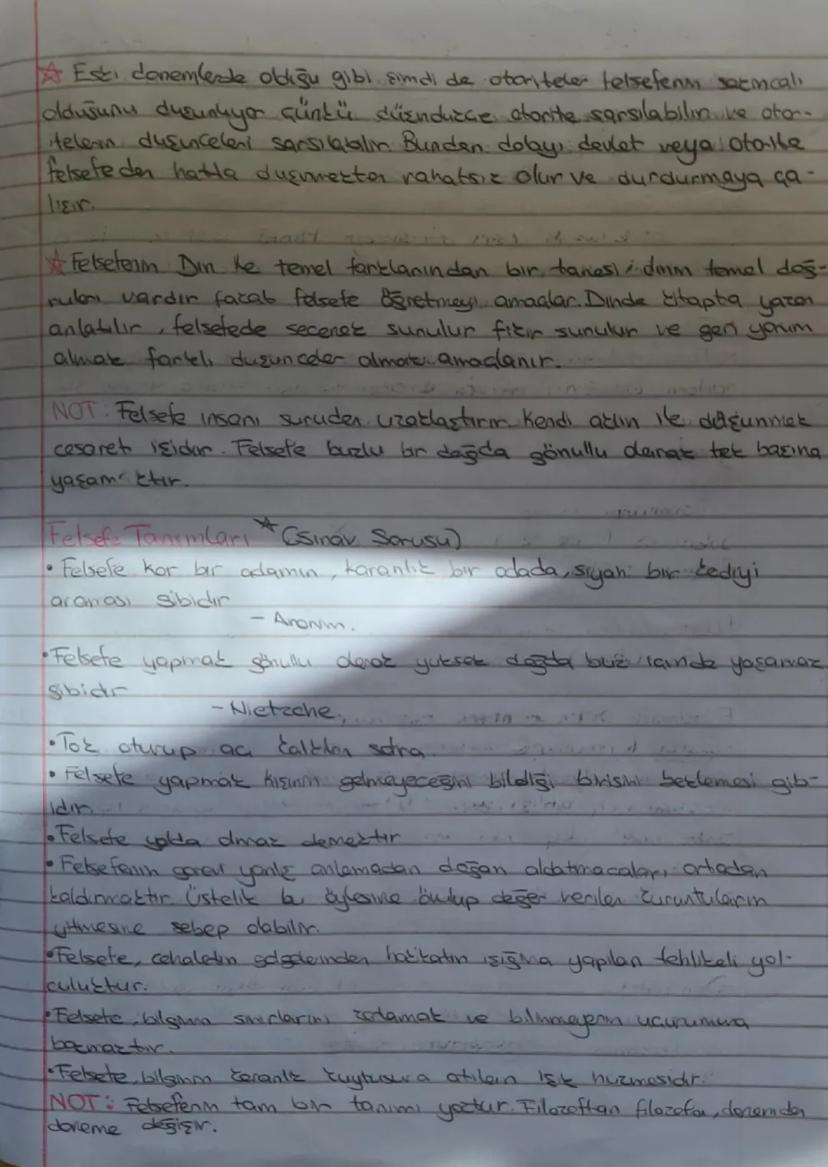 ☆ Eski dönemlerde olduğu gibi şimdi de otoriteler felsefenin sakıncalı
olduğunu düşünüyor çünkü düşündükçe otorite sarsılabilir ve otor-
itelerin düşünceleri sarsılabilir Bundan dolayı devlet veya otorite
felsefeden hatta düşünmekten rahatsız olur ve durdurmaya ça-
lışır.
☆ Felsefenin Din ile temel farklarından bir tanesi; dinin temel doğ-
ruları vardır fakat felsefe öğretmeyi amaçlar. Dinde kitapta yazan
anlatılır, felsefede seçenek sunulur fikir sunulur ve geri yorum
almak farklı düşünceler almak amaçlanır.
NOT: Felsefe insanı sürüden uzaklaştırır. Kendi aklın ile düşünmek
cesaret işidir. Felsefe buzlu bir dağda gönüllü olarak tek başına
yaşamaktır.
Felsefe Tanımları * (Sınav Sorusu)
• Felsefe kör bir adamın, karanlık bir odada, siyah bir kediyi
araması gibidir
- Anonim.
• Felsefe yapmak gönüllü olarak yüksek dağda buz içinde yaşamak
gibidir
- Nietzche,
• Tok oturup aç kalktım sofra
• Felsefe yapmak kişinin gelmeyeceğini bildiği birisini beklemesi gib-
idir.
• Felsefe yolda olmak demektir
• Felsefenin görevi yanlış anlamadan doğan aldatmacaları ortadan
kaldırmaktır. Üstelik bu öylesine övülüp değer verilen kuruntuların
yitmesine sebep olabilir.
• Felsefe, cehaletin gölgelerinden hakikatin ışığına yapılan tehlikeli yol-
culuktur.
• Felsefe, bilginin sınırlarını zorlamak ve bilinmeyenin uçurumuna
bakmaktır.
• Felsefe, bilginin karanlık kuytusuna atılan ışık huzmesidir.
NOT: Felsefenin tam bir tanımı yoktur. Filozoftan filozofa, dönemden
döneme değişir.